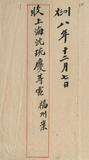 八年十二月七日
收上海沈琬慶等電 福州案